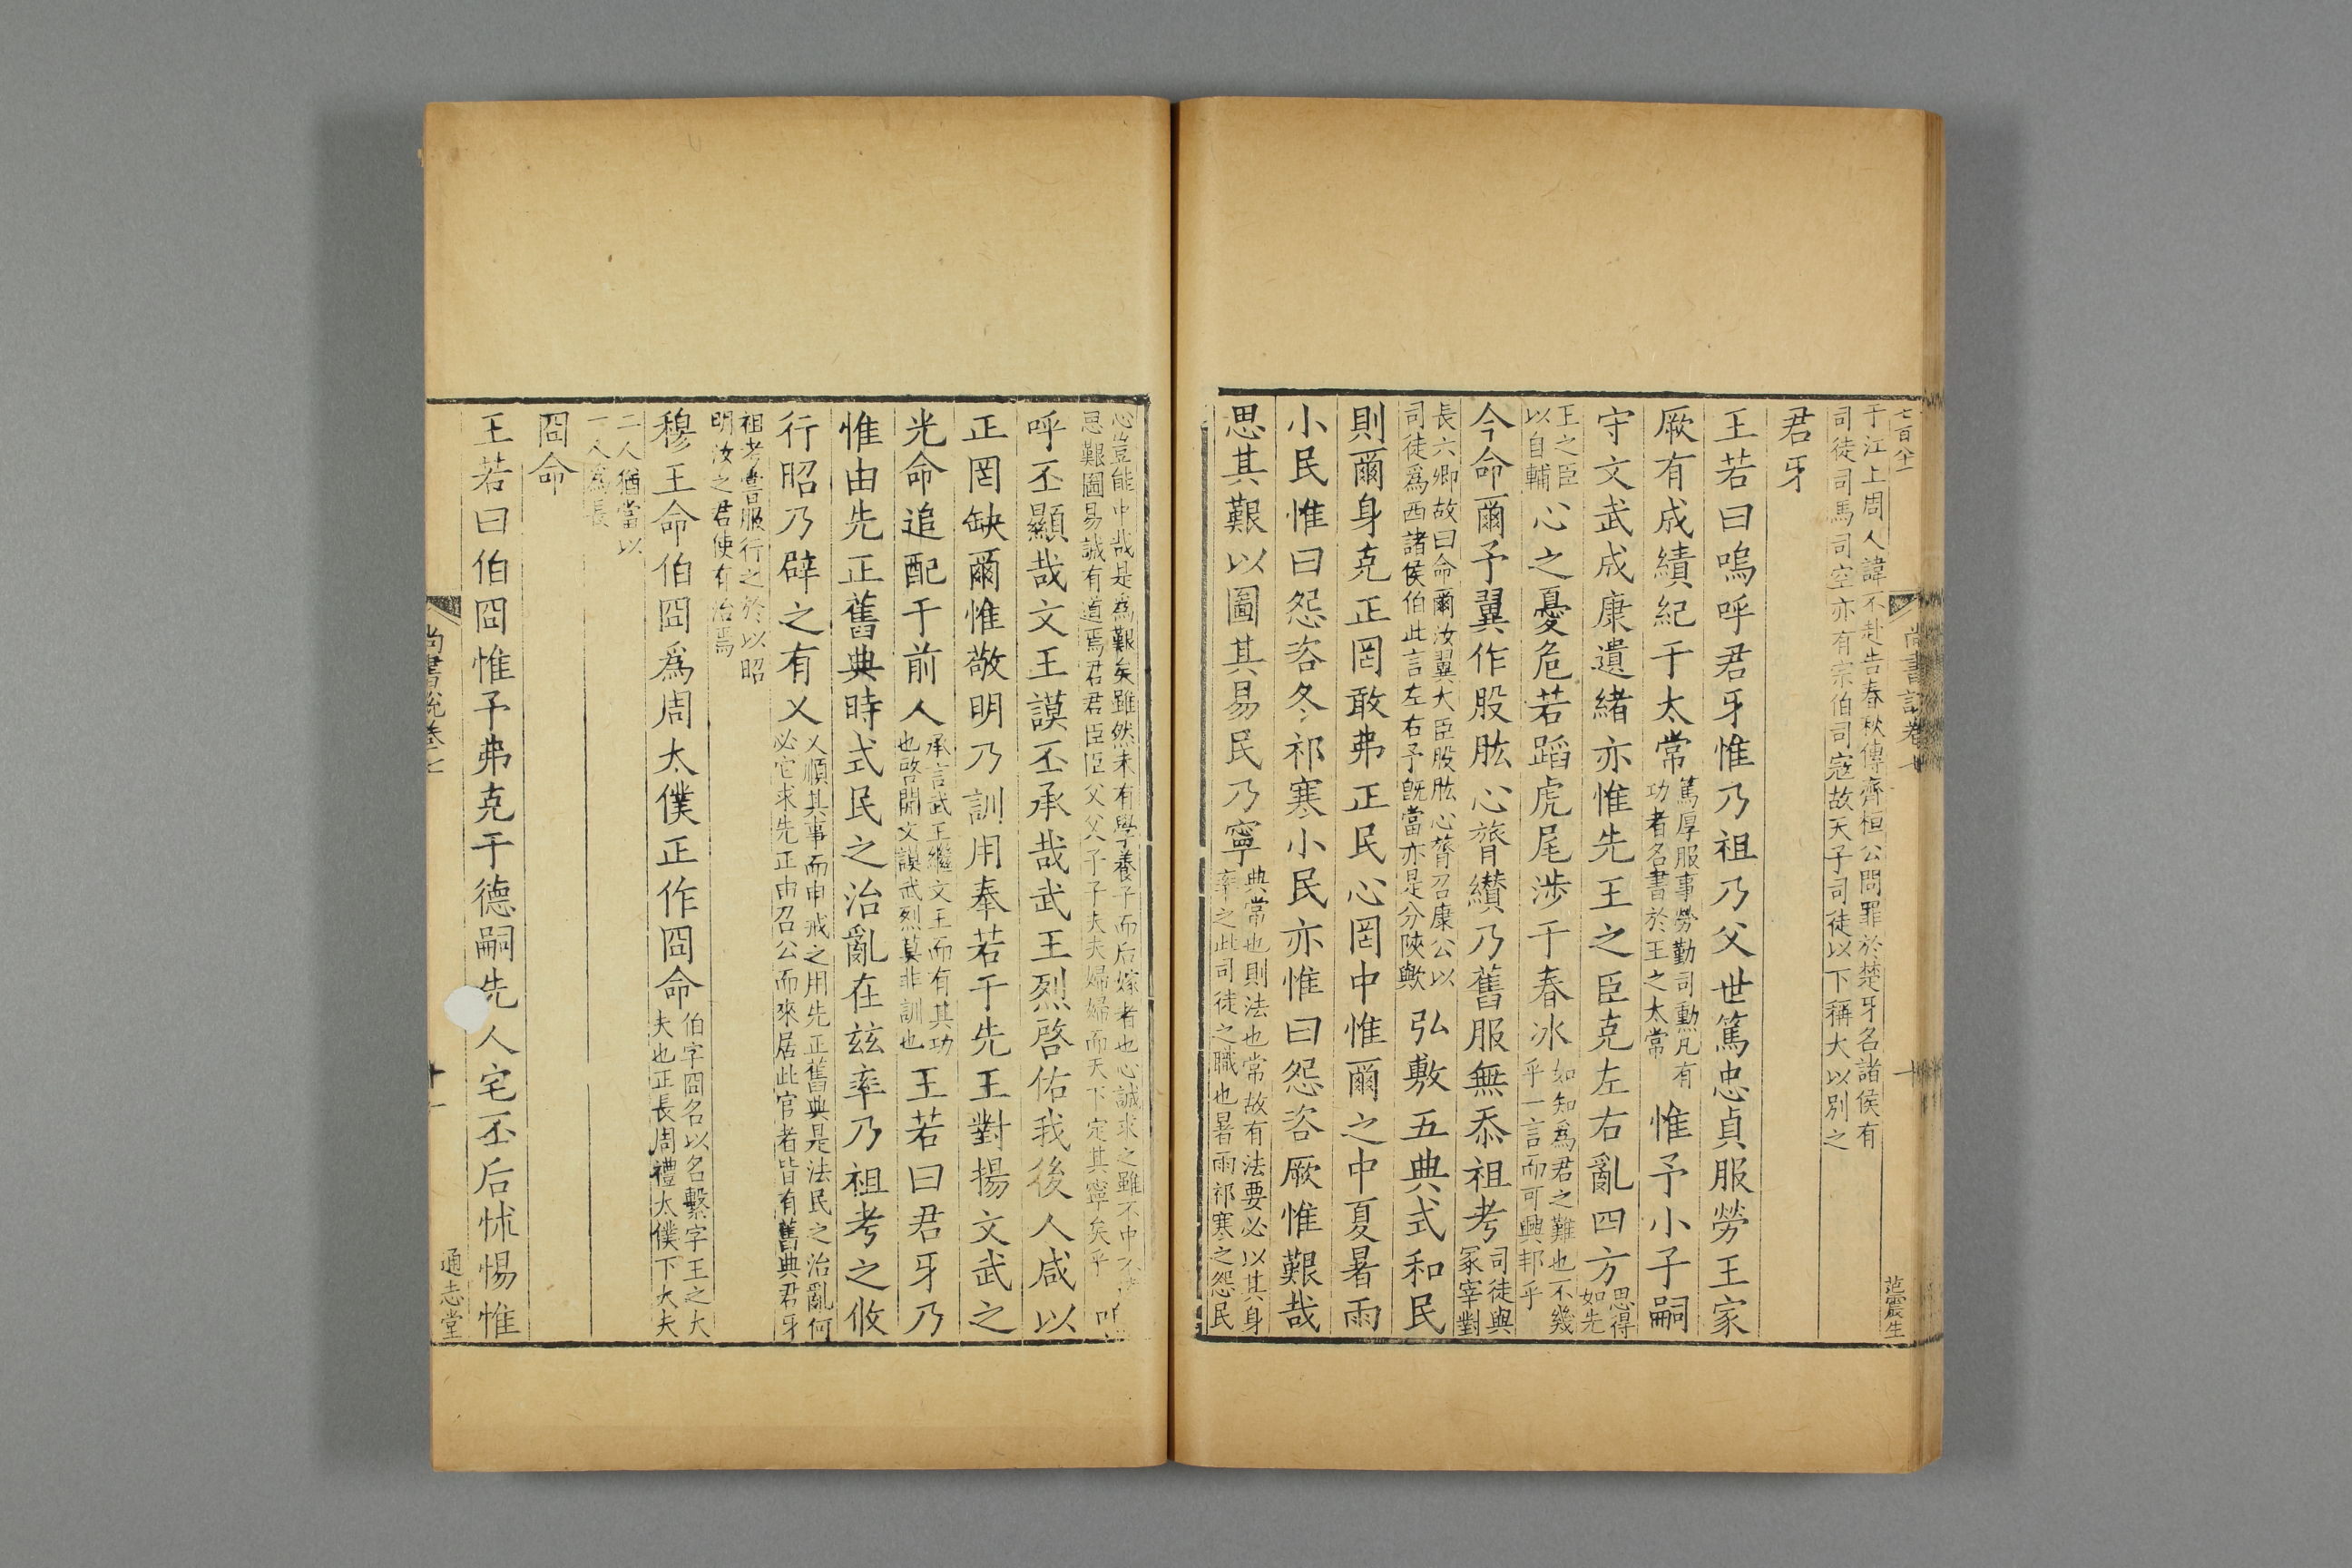 七百八十
尚書說卷七
十
范震生
于江上周人諱不赴告春秋傳齊桓公問罪於楚牙名諸侯有
司徒司馬司空亦有宗伯司寇故天子司徒以下稱大以別之
君牙
王若曰嗚呼君牙惟乃祖乃父世篤忠貞服勞王家
厥有成績紀于太常篤厚服事勞勤司勳凡有功者名書於王之太常惟予小子嗣
守文武成康遺緒亦惟先王之臣克左右亂四方思得如先
王之臣以自輔心之憂危若蹈虎尾涉于春冰如知為君之難也不幾乎一言而可興邦乎
今命爾予翼作股肱心膂纘乃舊服無忝祖考司徒與冢宰對
長六卿故曰命爾汝翼大臣股肱心膂召康公以司徒為西諸侯伯此言左右予旣當亦是分陝歟弘敷五典式和民
則爾身克正罔敢弗正民心罔中惟爾之中夏暑雨
小民惟曰怨咨冬祁寒小民亦惟曰怨咨厥惟艱哉
思其艱以圖其易民乃寧典常也則法也常故有法要必以其身率之此司徒之職也暑雨祁寒之怨民
心豈能中哉是為艱矣雖然未有學養子而后嫁者也心誠求之雖不中
思艱圖易誠有道焉君君臣臣父父子子夫夫婦婦而天下定其寧矣乎
呼丕顯哉文王謨丕承哉武王烈啓佑我後人咸以
正罔缺爾惟敬明乃訓用奉若于先王對揚文武之
光命追配于前人承言武王繼文王而有其功也啓開文謨武烈莫非訓也王若曰君牙乃
惟由先正舊典時式民之治亂在茲率乃祖考之攸
行昭乃辟之有乂乂順其事而申戒之用先正舊典是法民之治亂何必它求先正由召公而來居此官者皆有舊典君牙
祖考嘗服行之於以昭明汝之君使有治焉
穆王命伯冏爲周太僕正作冏命伯字冏名以名繫字王之大夫也正長周禮太僕下大夫
二人猶當以一人爲長
冏命
王若曰伯冏惟予弗克于德嗣先人宅丕后怵惕惟
尚書說卷七
十一
通志堂